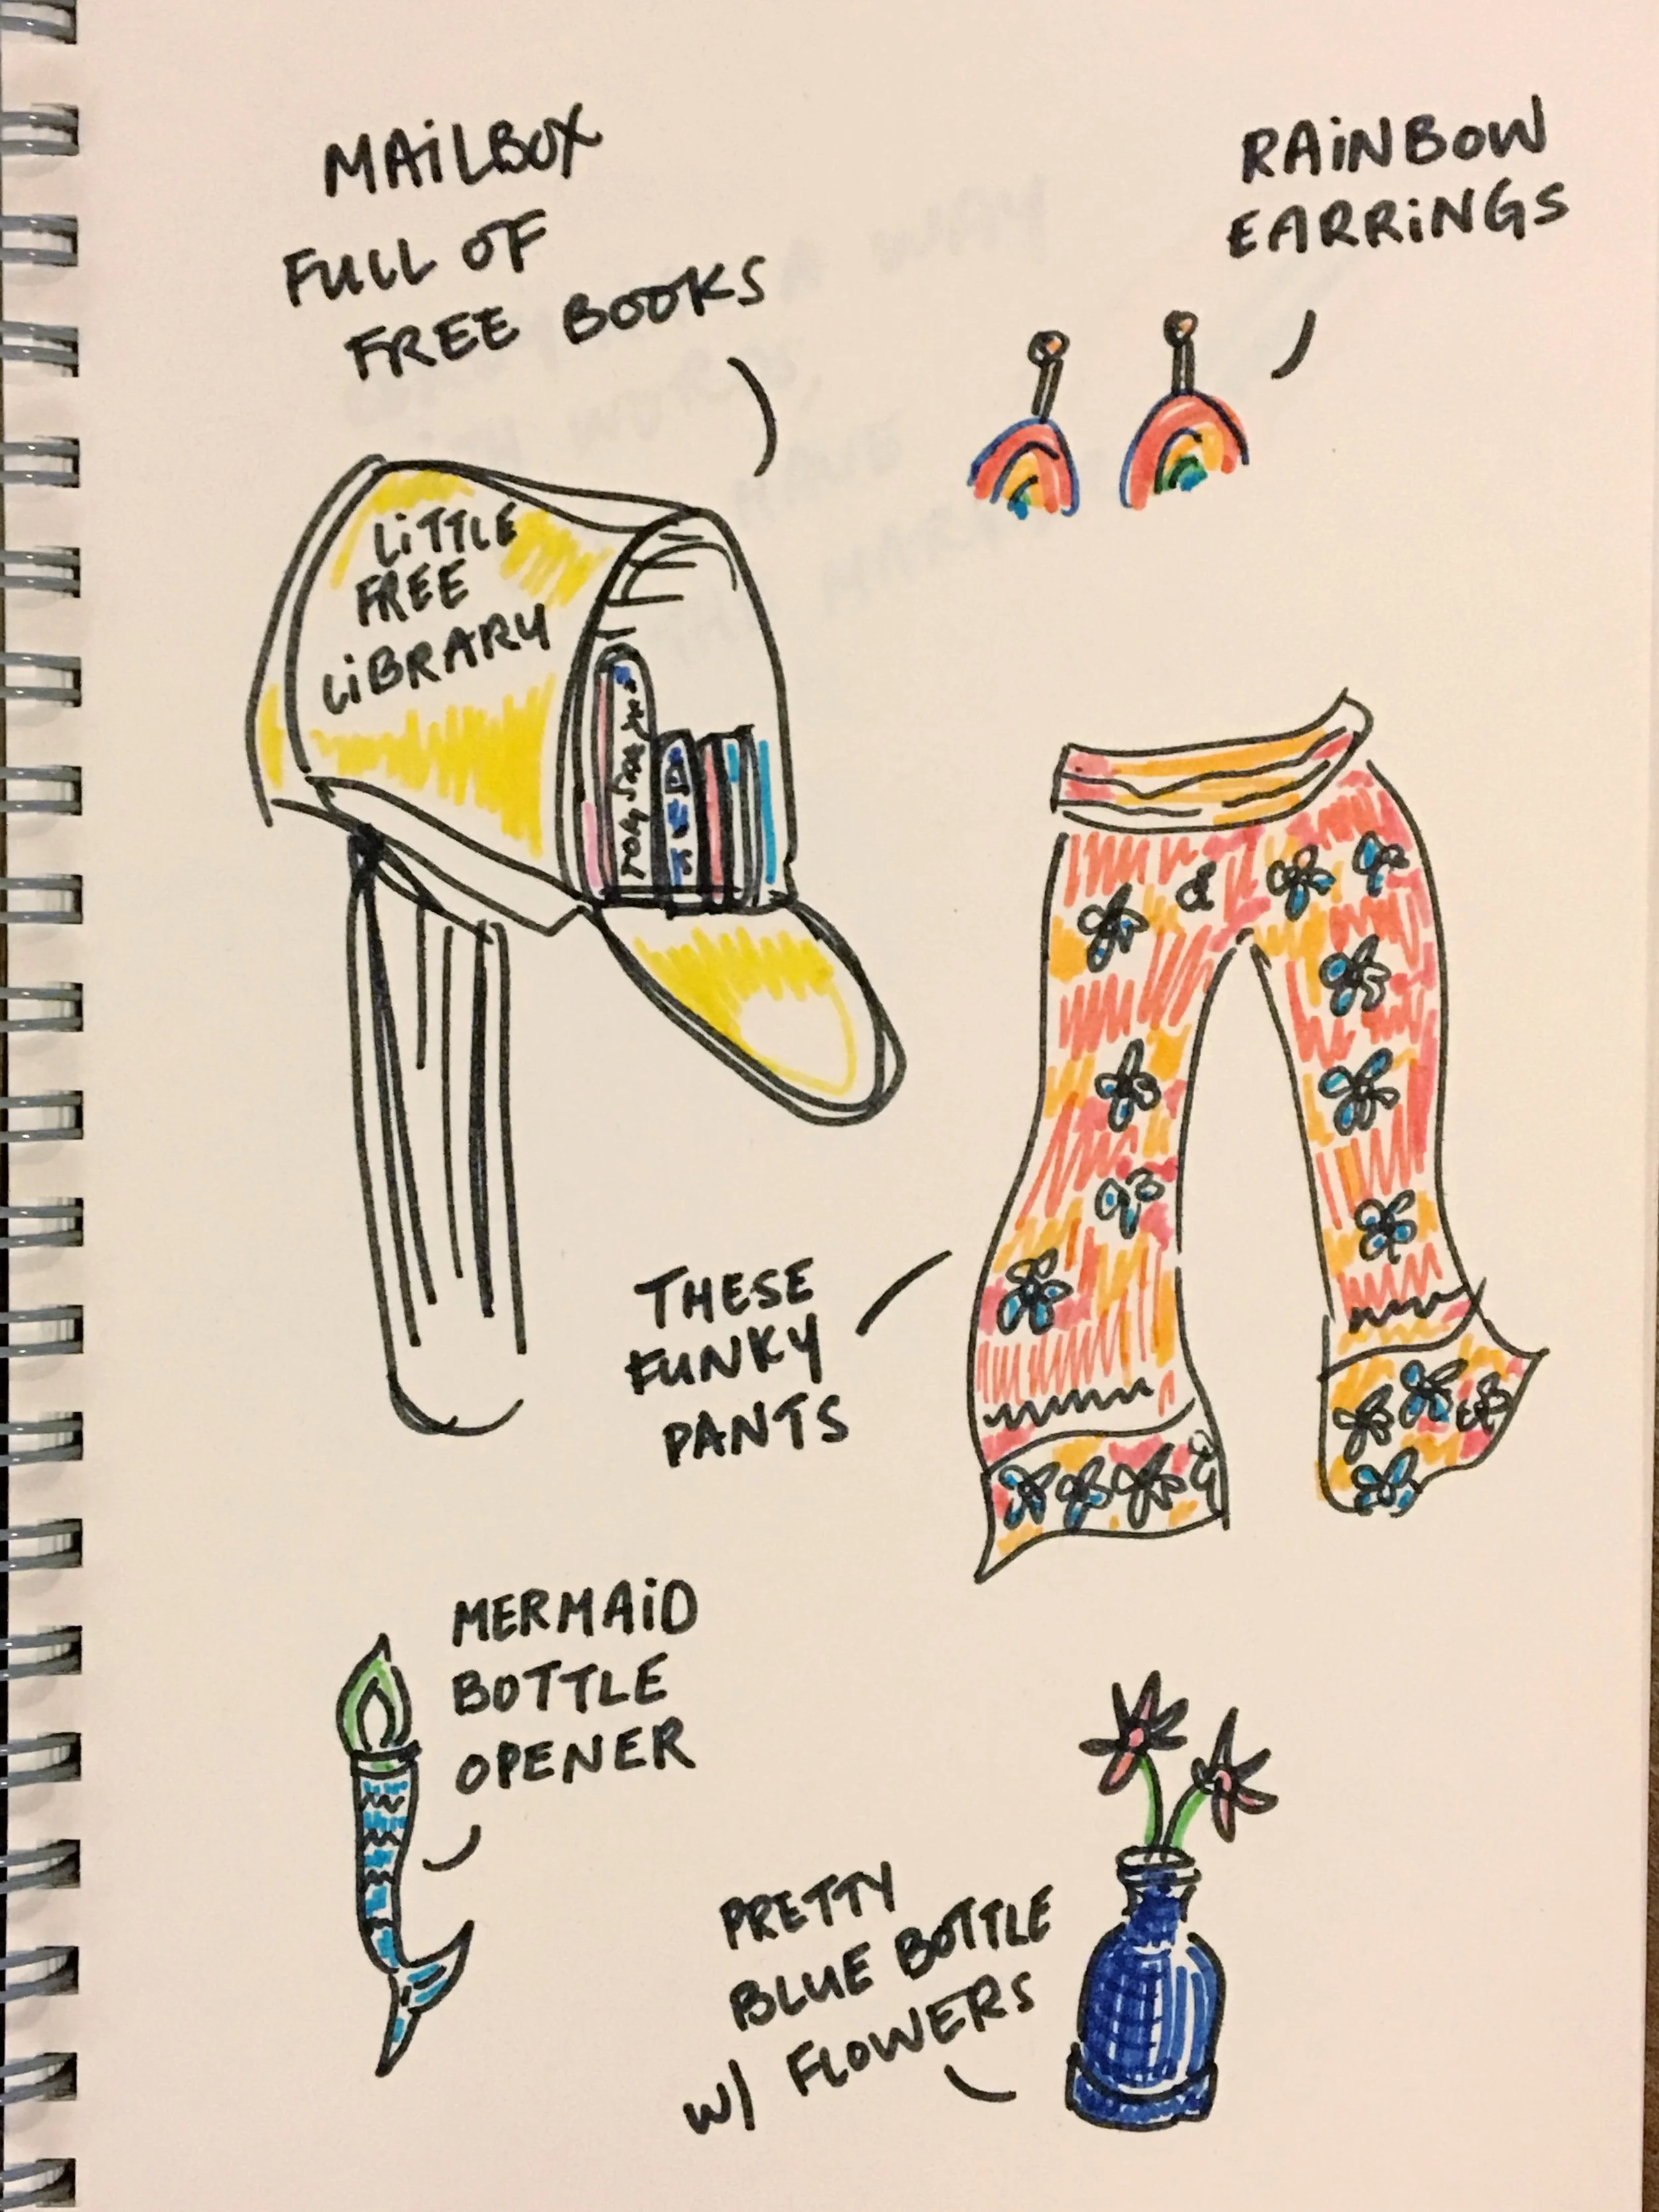 MAiLBOX
FULL OF
FREE BOOKS
RAiNBOW
EARRiNGS
LiTTLE
FREE
LiBRARY
THESE
FUNKY
PANTS
MERMAiD
BOTTLE
OPENER
PRETTY
BLUE BOTTLE
W/ FLOWERS